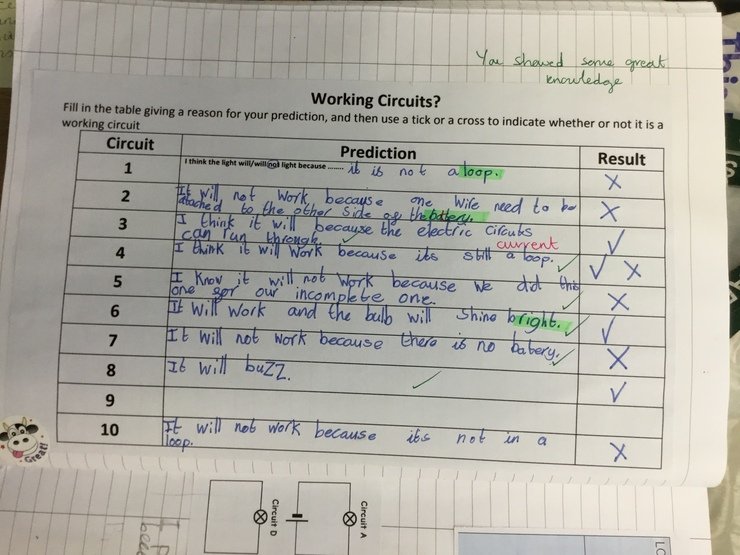 You showed some great
knowledge
Working Circuits?
Fill in the table giving a reason for your prediction, and then use a tick or a cross to indicate whether or not it is a
working circuit
Circuit Prediction Result
1 I think the light will/will not light because ...... it is not a loop. ✗
2 It will not work because one wire need to be
attached to the other side of the batery. ✗
3 I think it will because the electric circuits
can run through. current ✓ ✓
4 I think it will work because its still a loop. ✓ ✓ ✗
5 I know it will not work because we did this
one for our incomplete one. ✓ ✗
6 It will work and the bulb will shine bright. ✓ ✓
7 It will not work because there is no batery. ✓ ✗
8 It will buzz. ✓ ✓
9
10 It will not work because its not in a
loop. ✗
Great!
Circuit D
Circuit A